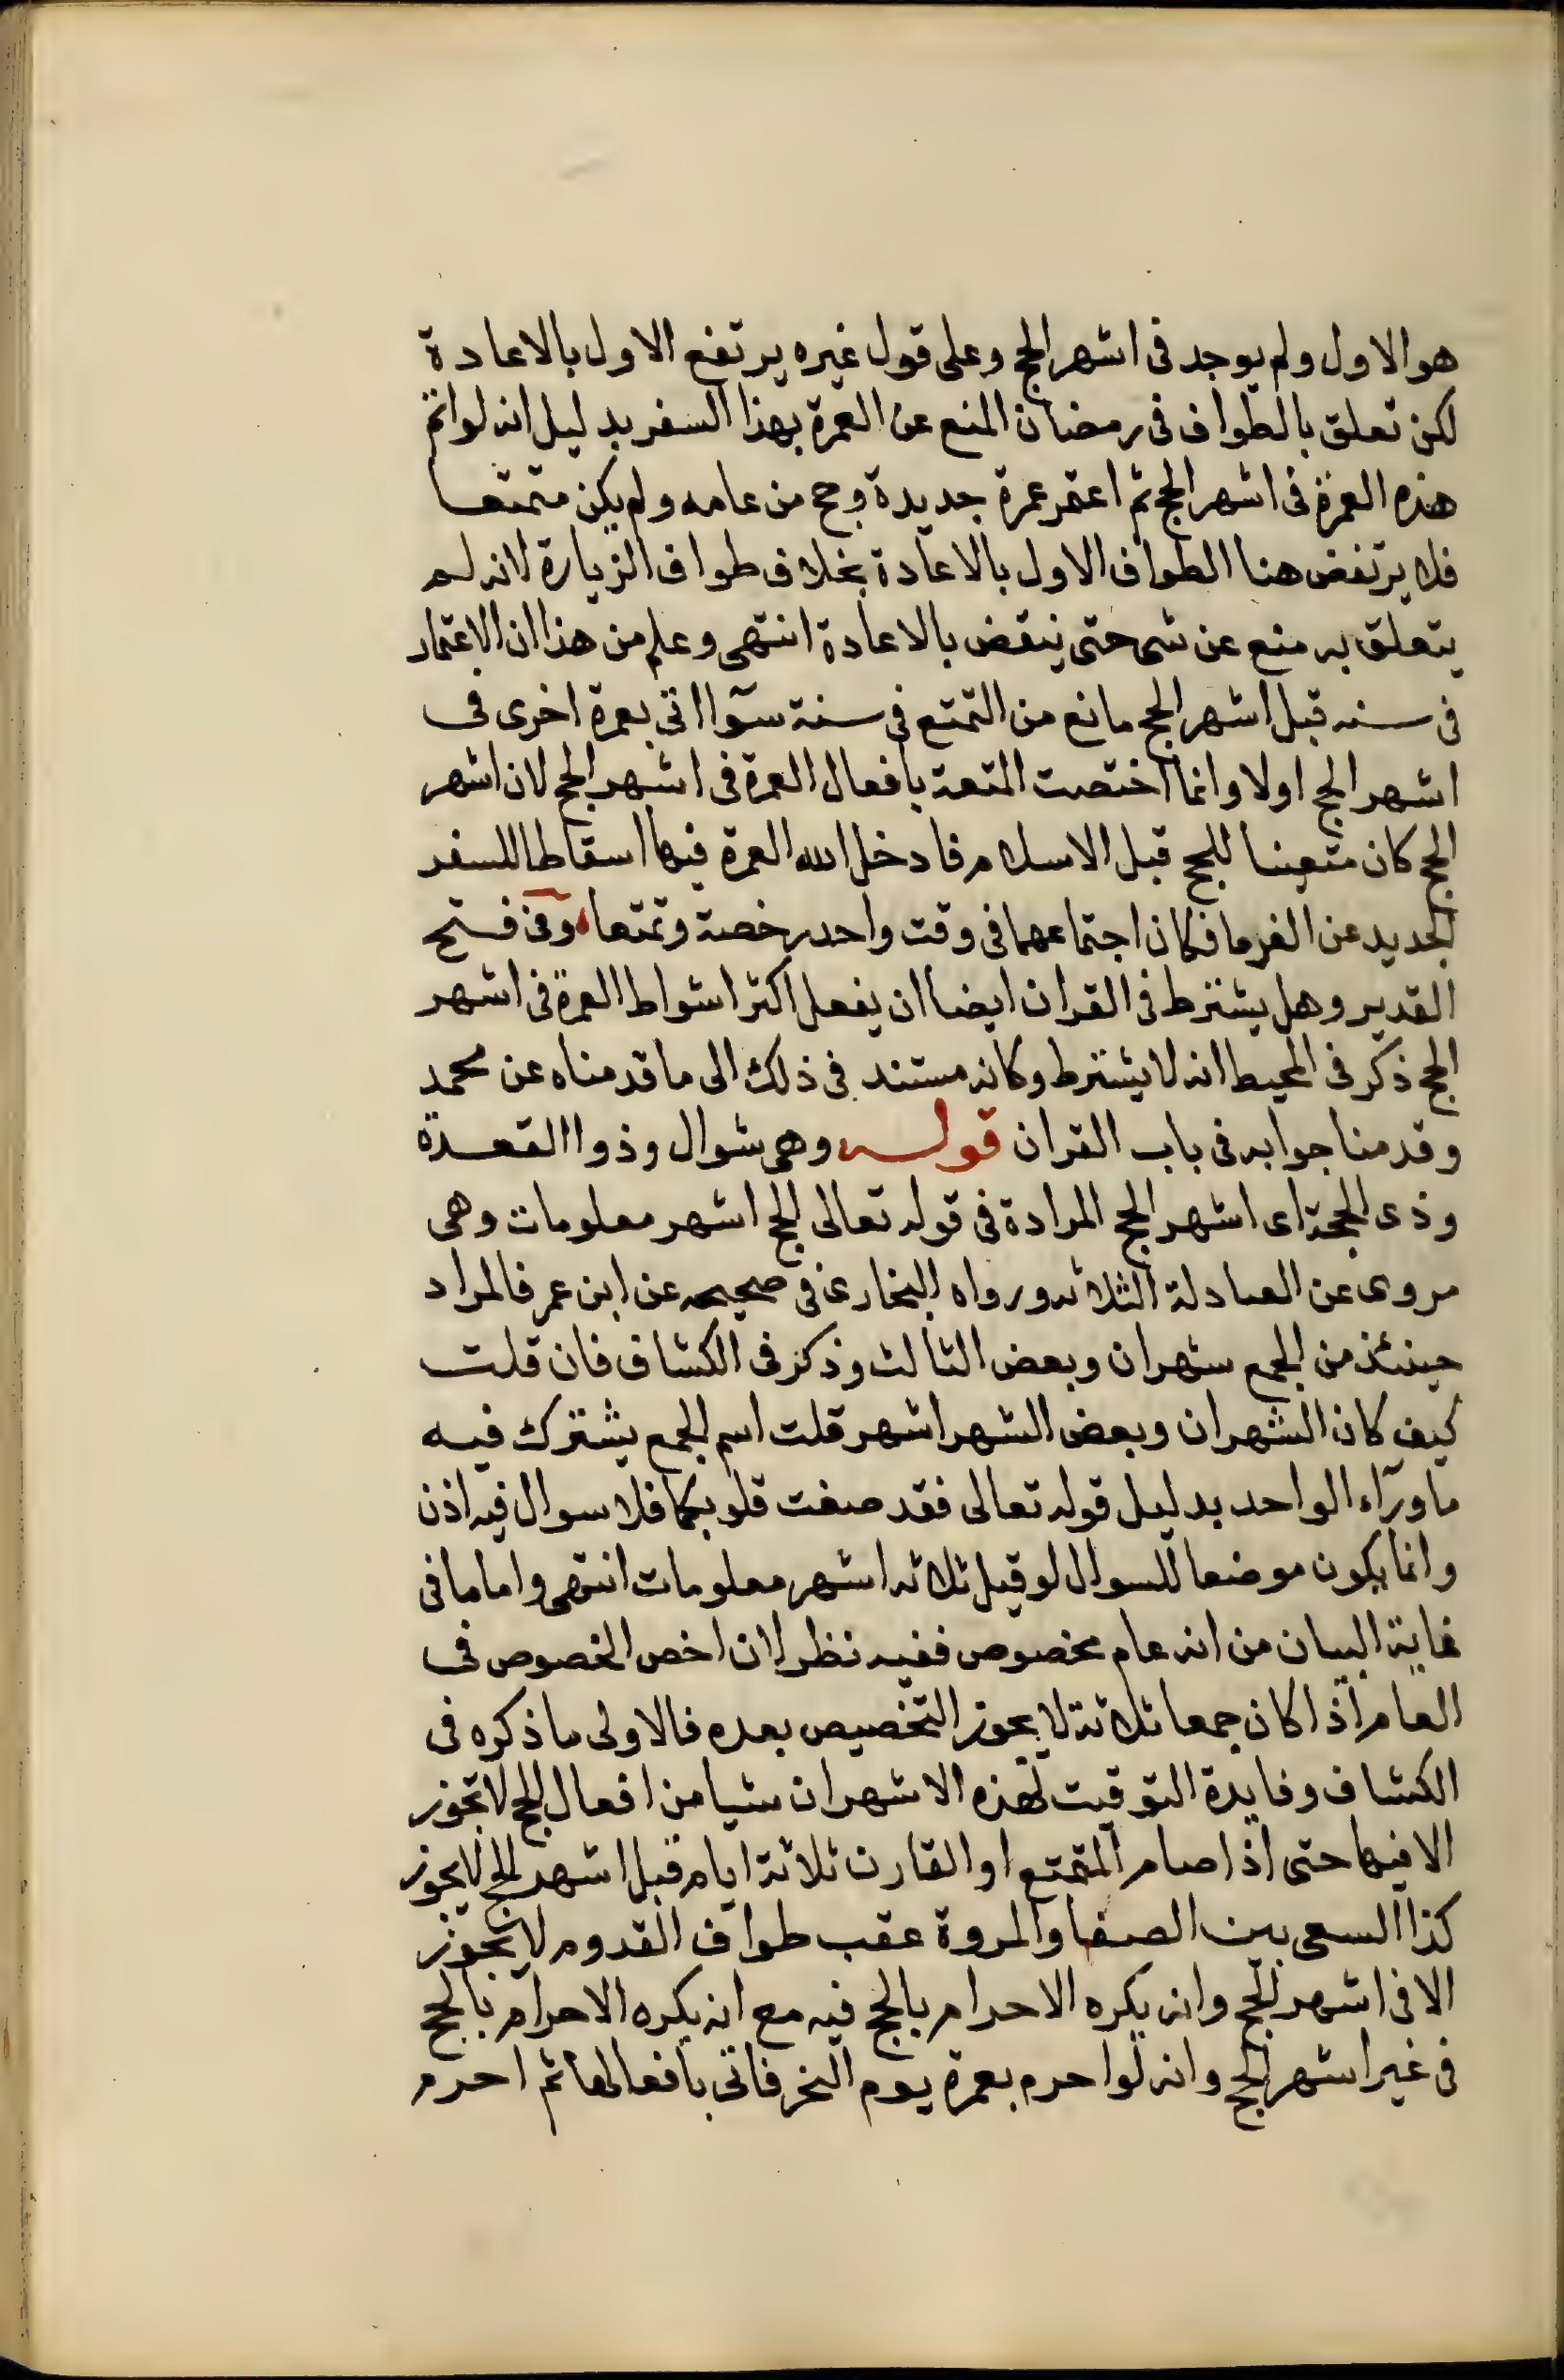 هو الاول ولم يوجد فى اشهر الحج وعلى قول غيره يرتفع الاول بالاعادة
لكن تعلق بالطواف فى رمضان المنع عن العمرة بهذا السفر بدليل انه لو اتم
هذه العمرة فى اشهر الحج ثم اعتمر عمرة جديدة وحج من عامه ولم يكن متمتعا
فلا يرتفض هنا الطواف الاول بالاعادة بخلاف طواف الزيارة لانه لم
يتعلق به منع عن شى حتى ينتقض بالاعادة انتهى وعلم من هذا ان الاعتمار
فى سنه قبل اشهر الحج مانع من التمتع فى سنة سوآا اتى بعمرة اخرى فى
اشهر الحج اولا وانما اختصت المتعة بافعال العمرة فى اشهر الحج لان اشهر
الحج كان متعينا للحج قبل الاسلام فادخل الله العمرة فيها اسقاطا للسفر
الجديد عن الغرما فكان اجتماعهما فى وقت واحد رخصة وتمتعا وفى فتح
القدير وهل يشترط فى القران ايضا ان يفعل اكثر اشواط العمرة فى اشهر
الحج ذكر فى المحيط انه لا يشترط وكانه مستند فى ذلك الى ما قدمناه عن محمد
وقدمنا جوابه فى باب القران قوله وهى شوال وذوا القعدة
وذى الحجة اى اشهر الحج المرادة فى قوله تعالى الحج اشهر معلومات وهى
مروى عن العبادلة الثلاثه ورواه البخارى فى صحيحه عن ابن عمر فالمراد
حينئذ من الجمع شهران وبعض الثالث وذكر فى الكشاف فان قلت
كيف كان الشهران وبعض الشهر اشهر قلت اسم الجمع يشترك فيه
ما ورآء الواحد بدليل قوله تعالى فقد صغت قلوبكما فلا سوال فيه اذن
وانما يكون موضعا للسوال لو قيل ثلاثه اشهر معلومات انتهى واما ما فى
غاية البيان من انه عام مخصوص ففيه نظر لان اخص الخصوص فى
العام اذا كان جمعا ثلاثة لا يجوز التخصيص بعده فالاولى ما ذكره فى
الكشاف وفايدة التوقيت لهذه الاشهر ان شيا من افعال الحج لا تجوز
الا فيها حتى اذا صام المتمتع او القارن ثلاثة ايام قبل اشهر الحج لا يجوز
كذا السعى بين الصفا والمروة عقب طواف القدوم لا يجوز
الا فى اشهر الحج وانه يكره الاحرام بالحج فيه مع انه يكره الاحرام بالحج
فى غير اشهر الحج وانه لو احرم بعمرة يوم النحر فاتى بافعالها ثم احرم